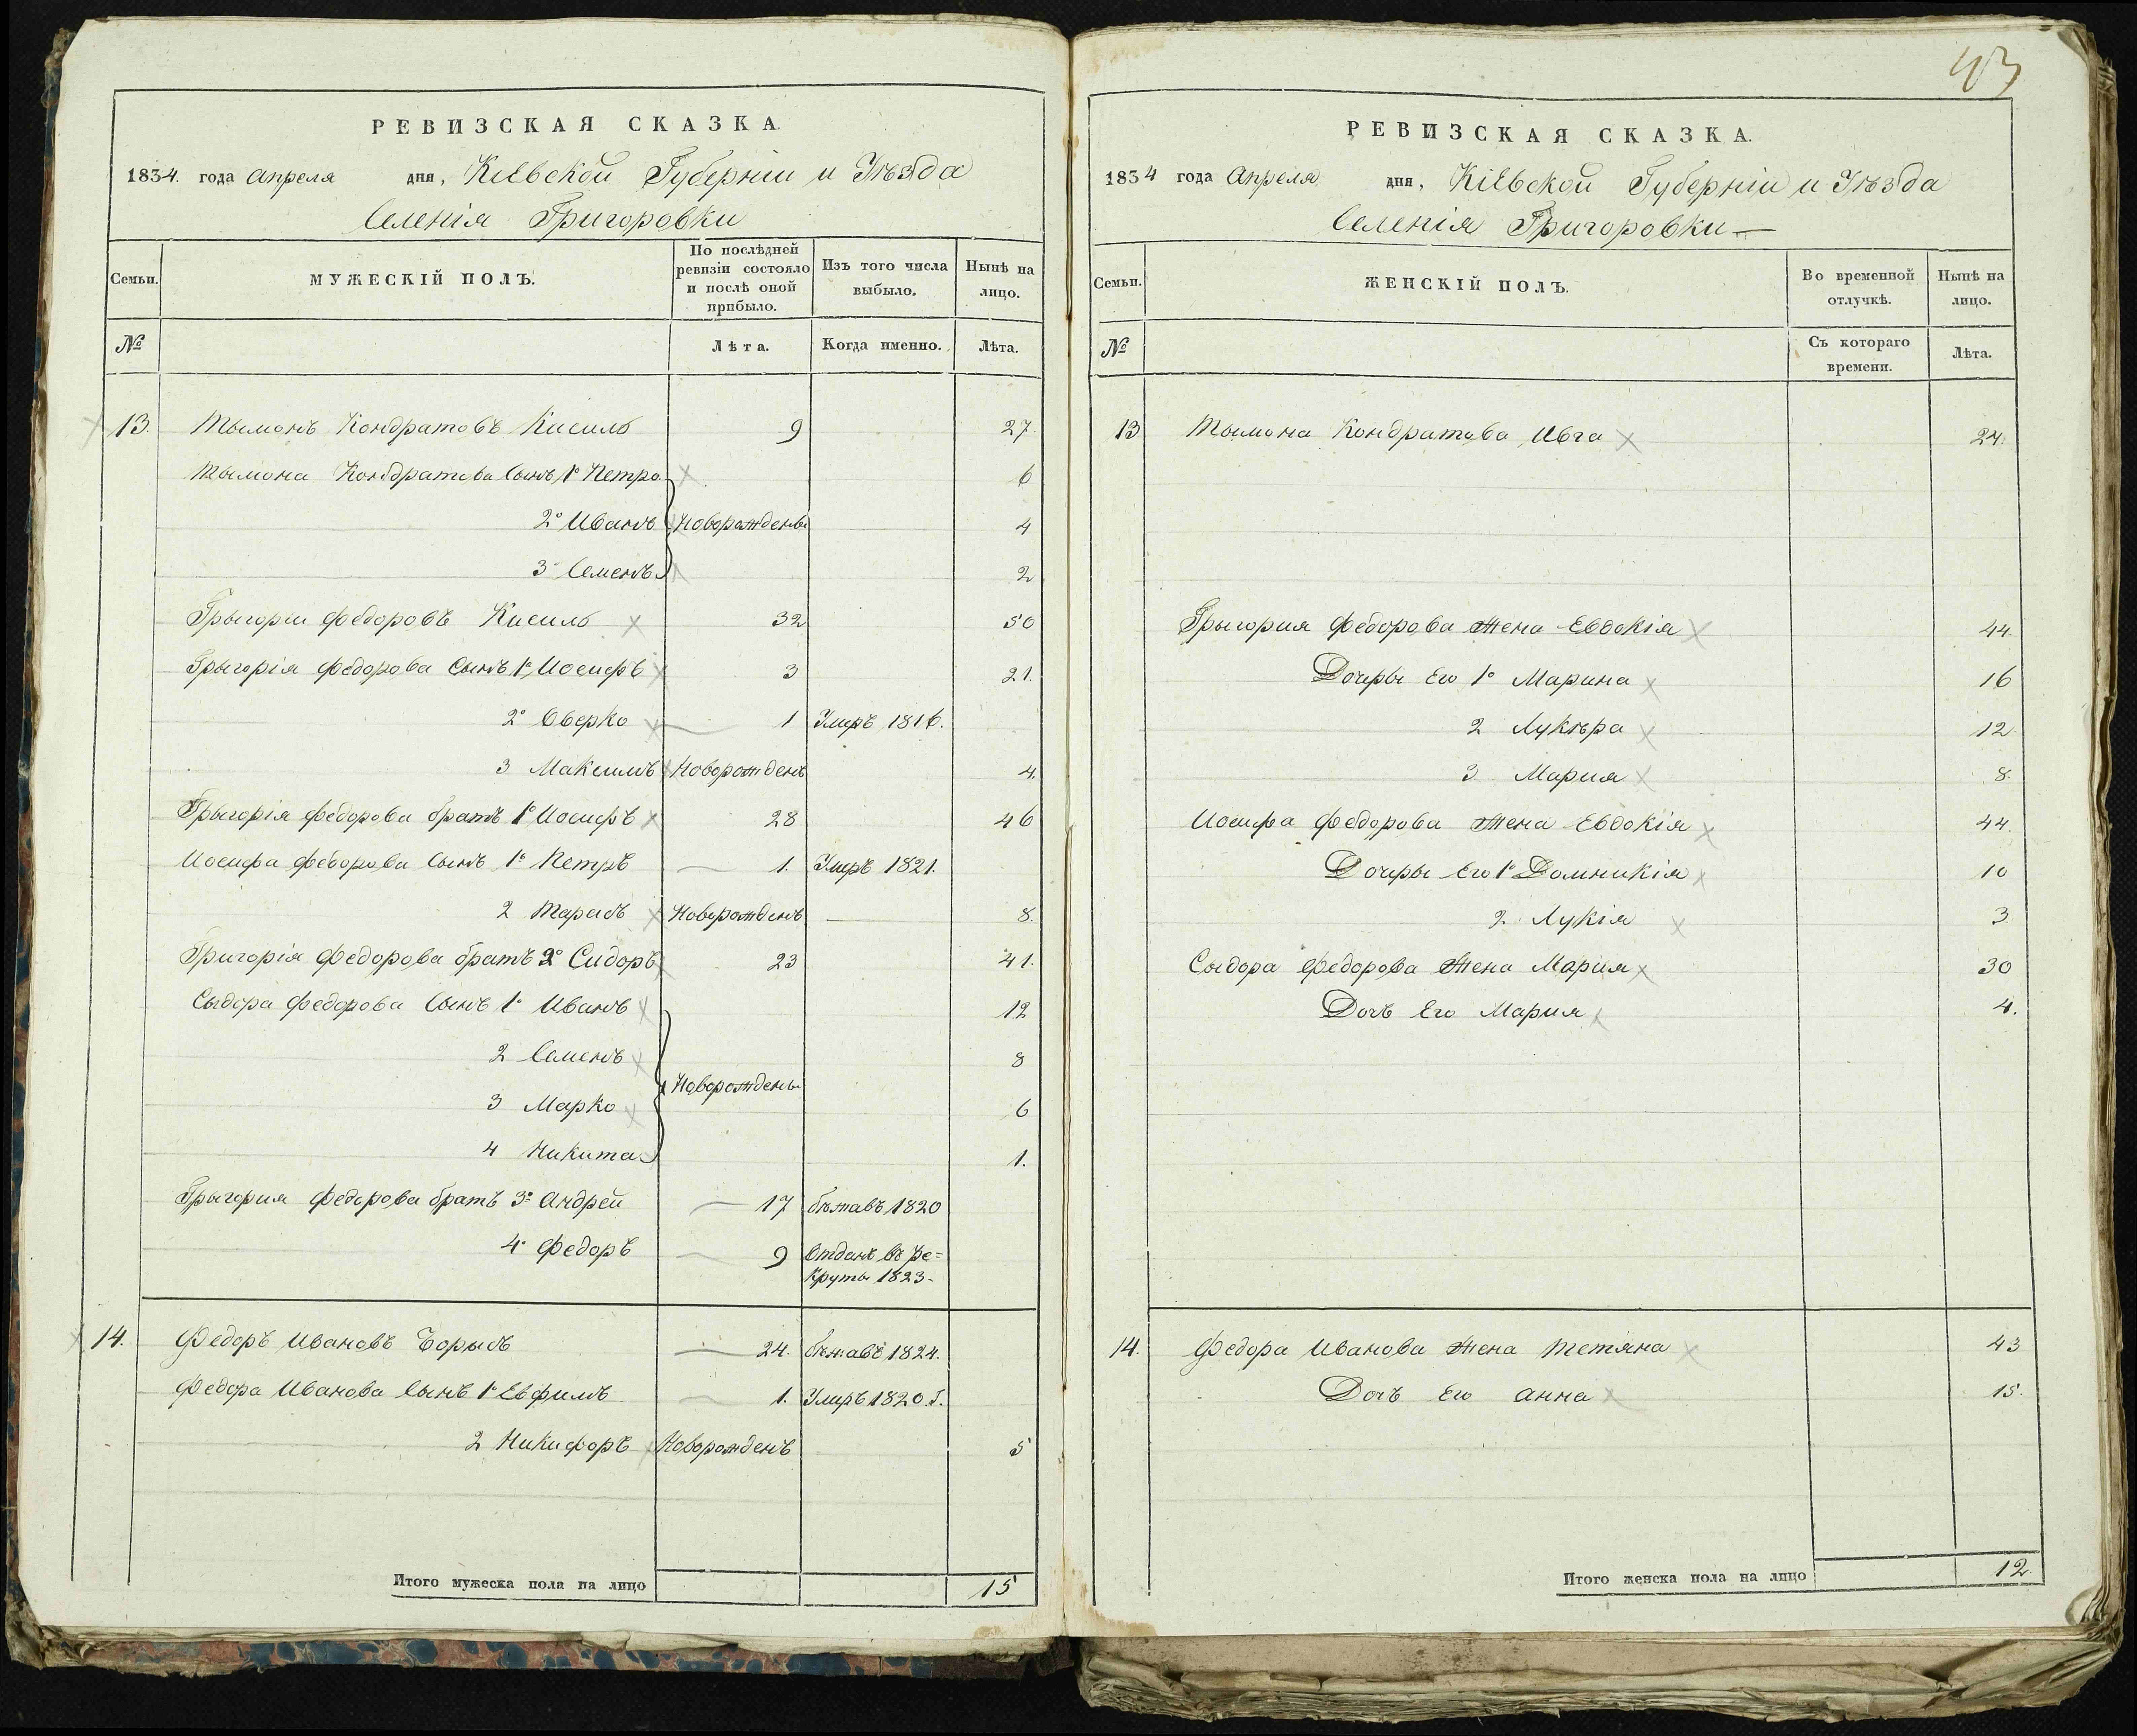 РЕВИЗСКАЯ СКАЗКА.
1834. года Апреля дня, Кіевской Губерніи и Уѣзда
Селенія Григоровки
Семьи.
МУЖЕСКІЙ ПОЛЪ.
По послѣдней ревизіи состояло и послѣ оной прибыло.
Изъ того числа выбыло.
Нынѣ на лицо.
№ Лѣта. Когда именно. Лѣта.
13. Тымонъ Кондратовъ Кисиль 9 27.
Тымона Кондратова Сынъ 1й Петро 6
2й Иванъ Новорождены 4
3 Семенъ 2
Грыгорій Федоровъ Кисиль 32 50
Грыгорія Федорова Сынъ 1й Иосифъ 3 21.
2й Оверко 1 Умръ 1816.
3 Максимъ Новорожденъ 4.
Грыгорія Федорова братъ 1й Иосифъ 28 46
Иосифа Федорова Сынъ 1й Петръ 1. Умръ 1821.
2 Тарасъ Новорожденъ 8.
Григорія Федорова братъ 2й Сидоръ 23 41.
Сыдора Федорова Сынъ 1й Иванъ 12
2 Семенъ 8
Новорождены
3 Марко 6
4 Никита 1.
Грыгория Федорова братъ 3й Андрей 17 бѣжавъ 1820
4й Федоръ 9 Отданъ въ Ре=
круты 1823.
14. Федоръ Ивановъ Борысъ 24. бѣжавъ 1824.
Федора Иванова Сынъ 1й Евфимъ 1. Умръ 1820.г.
2 Никифоръ Новорожденъ 5
Итого мужеска пола на лицо 15
43
РЕВИЗСКАЯ СКАЗКА.
1834 года Апреля дня, Кіевской Губерніи и Уѣзда
Селенія Григоровки
Семьи.
ЖЕНСКІЙ ПОЛЪ.
Во временной отлучкѣ.
Нынѣ на лицо.
№ Съ котораго времени. Лѣта.
13 Тымона Кондратова Ивга 24.
Грыгория Федорова Жена Евдокія 44.
Дочеры Его 1й Марина 16
2 Лукѣра 12
3 Мария 8.
Иосифа Федорова Жена Евдокія 44.
Дочеры Его 1й Домникія 10
2. Лукія 3
Сыдора Федорова Жена Мария 30
Дочъ Его Мария 4.
14. Федора Иванова Жена Тетяна 43
Дочъ Его Анна 15.
Итого женска пола на лицо 12